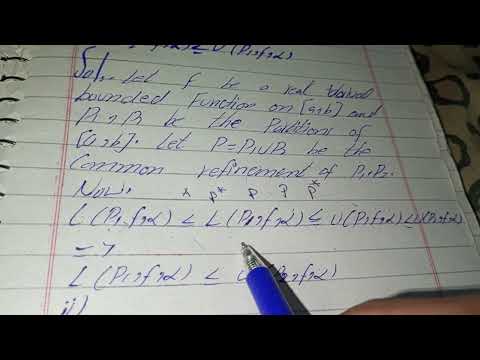 ≤ U(P,f,α)
Sol:- Let f be a real valued
bounded Function on [a,b] and
P1, P2 be the Partitions of
[a,b]. Let P=P1UP2 be the
Common refinement of P1,P2.
Now.
P* P P*
L(P1,f,α) ≤ L(P,f,α) ≤ U(P,f,α) ≤ U(P2,f,α)
=>
L(P1,f,α) ≤ U(P2,f,α)
ii)